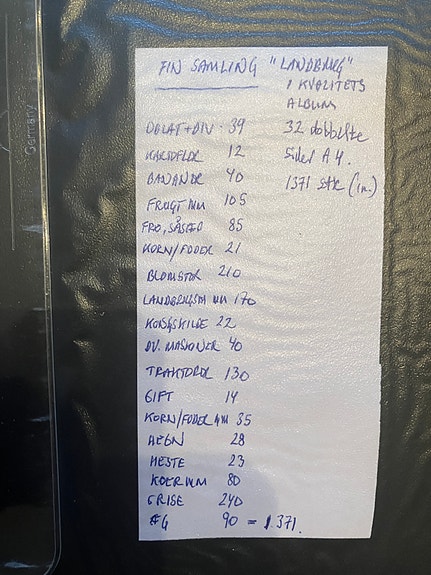 Germany
FIN SAMLING "LANDBRUG"
I KVALITETS
ALBUM
32 dobbelte
sider A4.
1371 stk (in.)
OBLAT + DIV. 39
KARTOFLER 12
BANANER 40
FRUGT MM 105
FRØ, SÅSÆD 85
KORN/FODER 21
BLOMSTER 210
LANDBRUGSM MM 170
KONGSKILDE 22
DV. MASKINER 40
TRAKTORER 130
GIFT 14
KORN/FODER MM 35
HEGN 28
HESTE 23
KOER MM 80
GRISE 240
ÆG 90 = 1371.